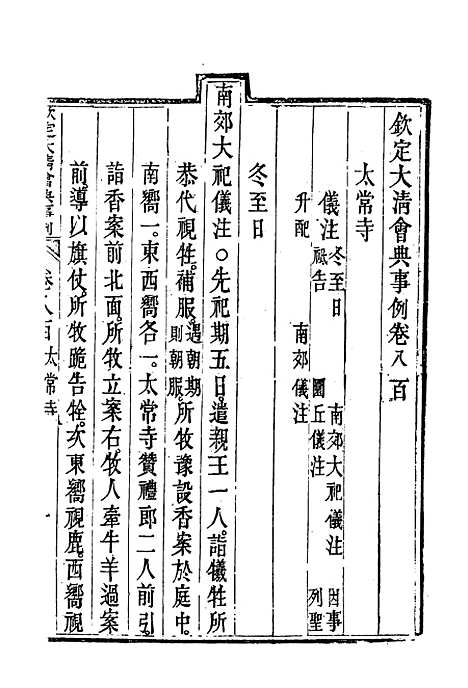 欽定大清會典事例卷八百
太常寺
儀注 冬至日 南郊大祀儀注 因事
祗告 圜丘儀注 列聖
升配 南郊儀注
冬至日
南郊大祀儀注○先祀期五日。遣親王一人。詣犧牲所
恭代視牲。補服。遇朝期則朝服。所牧豫設香案於庭中。
南嚮一。東西嚮各一。太常寺贊禮郎二人前引。
詣香案前北面。所牧立案右。牧人牽牛羊過案
前。導以旗仗。所牧跪告牷。次東嚮視鹿。西嚮視
欽定大清會典事例 卷八百 太常寺 一